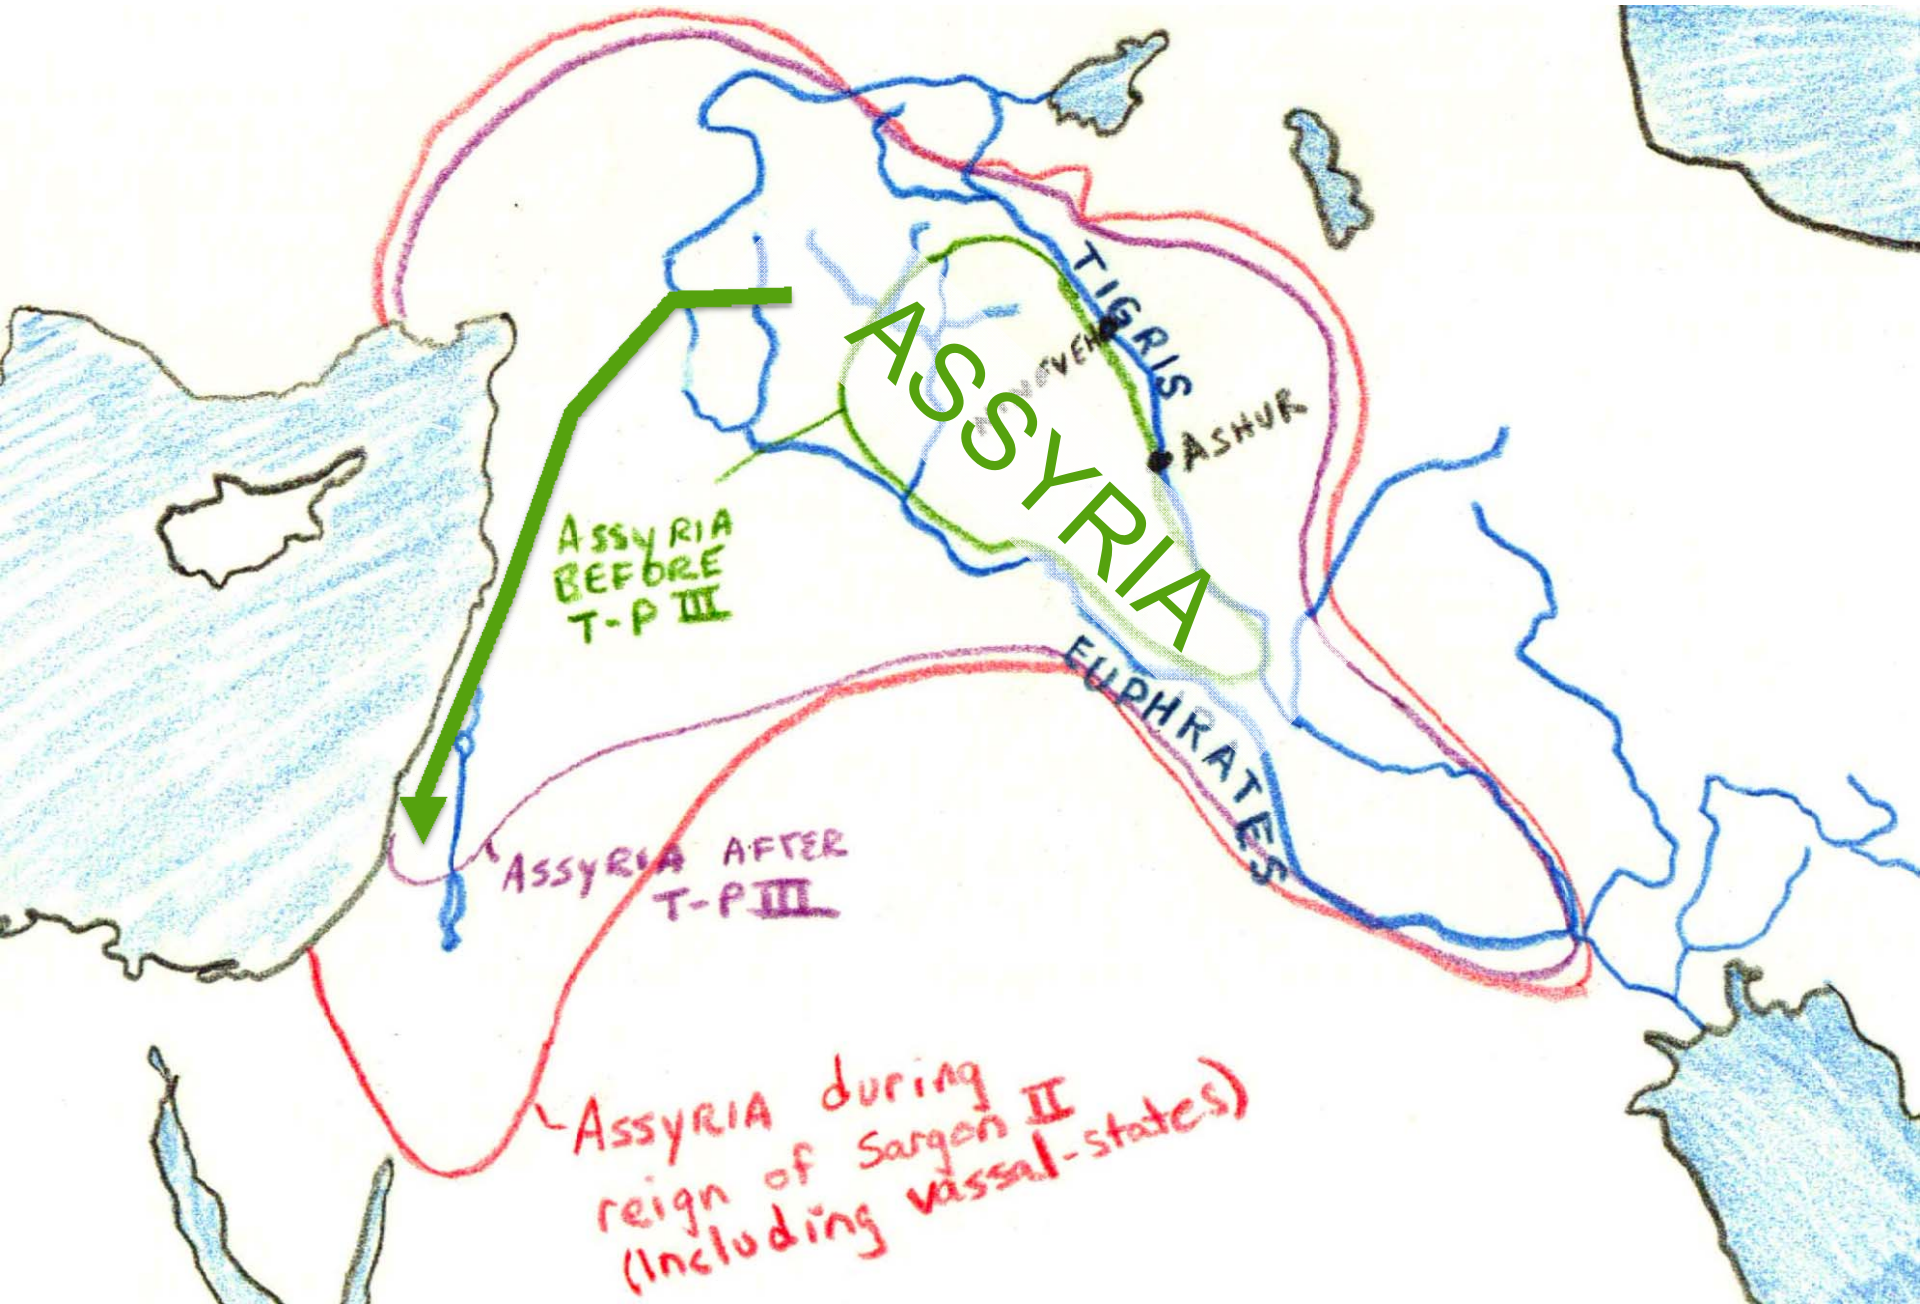 TIGRIS
ASSYRIA
NINEVEH
ASHUR
ASSYRIA
BEFORE
T-P III
EUPHRATES
ASSYRIA AFTER
T-P III
ASSYRIA during
reign of Sargon II
(Including vassal-states)